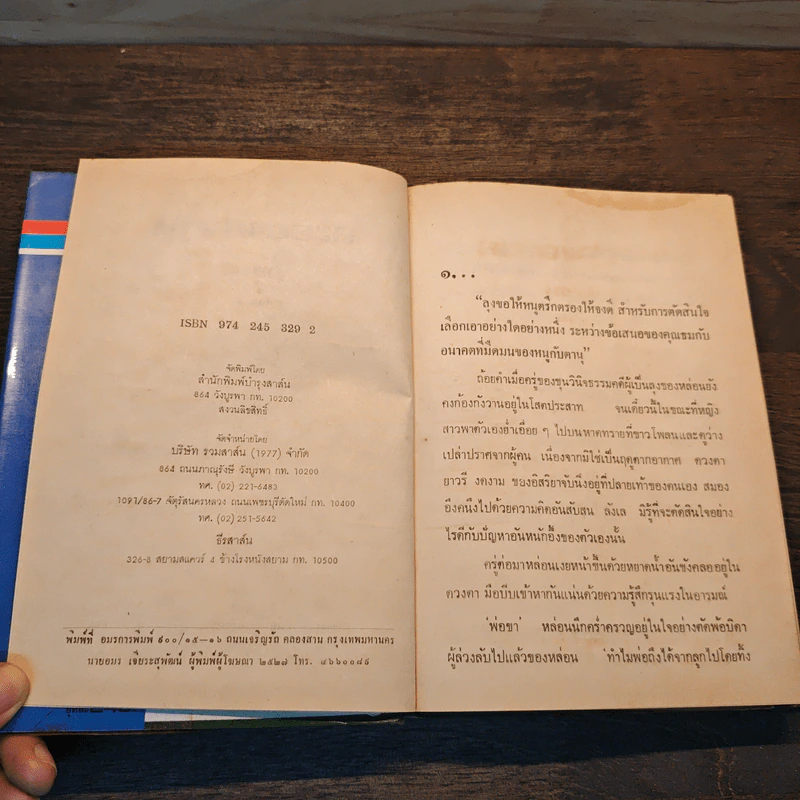 ISBN 974 245 329 2
จัดพิมพ์โดย
สำนักพิมพ์บำรุงสาส์น
864 วังบูรพา กท. 10200
สงวนลิขสิทธิ์
จัดจำหน่ายโดย
บริษัท รวมสาส์น (1977) จำกัด
864 ถนนภาณุรังษี วังบูรพา กท. 10200
ทศ. (02) 221-6483
1091/86-7 จัตุรัสนครหลวง ถนนเพชรบุรีตัดใหม่ กท. 10400
ทศ. (02) 251-5642
ธีรสาส์น
326-8 สยามสแควร์ 4 ข้างโรงหนังสยาม กท. 10500
พิมพ์ที่ อมรการพิมพ์ ๘๐๐/๑๕—๑๖ ถนนเจริญรัถ คลองสาน กรุงเทพมหานคร
นายอมร เจียระสุพัฒน์ ผู้พิมพ์ผู้โฆษณา ๒๕๒๗ โทร. ๔๖๖๐๐๔๘
๑...
"ลุงขอให้หนูตรึกตรองให้จงดี สำหรับการตัดสินใจ
เลือกเอาอย่างใดอย่างหนึ่ง ระหว่างข้อเสนอของคุณธมกับ
อนาคตที่มืดมนของหนูกับตานุ"
ถ้อยคำเมื่อครู่ของขุนวินิจธรรมคดีผู้เป็นลุงของหล่อนยัง
คงก้องกังวานอยู่ในโสตประสาท จนเดี๋ยวนี้ในขณะที่หญิง
สาวพาตัวเองย่ำเอื่อย ๆ ไปบนหาดทรายที่ขาวโพลนและดูว่าง
เปล่าปราศจากผู้คน เนื่องจากมิใช่เป็นฤดูตากอากาศ ดวงตา
ยาวรี งดงาม ของอิสริยาจับนิ่งอยู่ที่ปลายเท้าของตนเอง สมอง
อึงคนึงไปด้วยความคิดอันสับสน ลังเล มิรู้ที่จะตัดสินใจอย่าง
ไรดีกับปัญหาอันหนักอึ้งของตัวเองนั้น
ครู่ต่อมาหล่อนเงยหน้าขึ้นด้วยหยาดน้ำอันขังคลออยู่ใน
ดวงตา มือบีบเข้าหากันแน่นด้วยความรู้สึกรุนแรงในอารมณ์
'พ่อขา' หล่อนนึกคร่ำครวญอยู่ในใจอย่างตัดพ้อบิดา
ผู้ล่วงลับไปแล้วของหล่อน 'ทำไมพ่อถึงได้จากลูกไปโดยทิ้ง